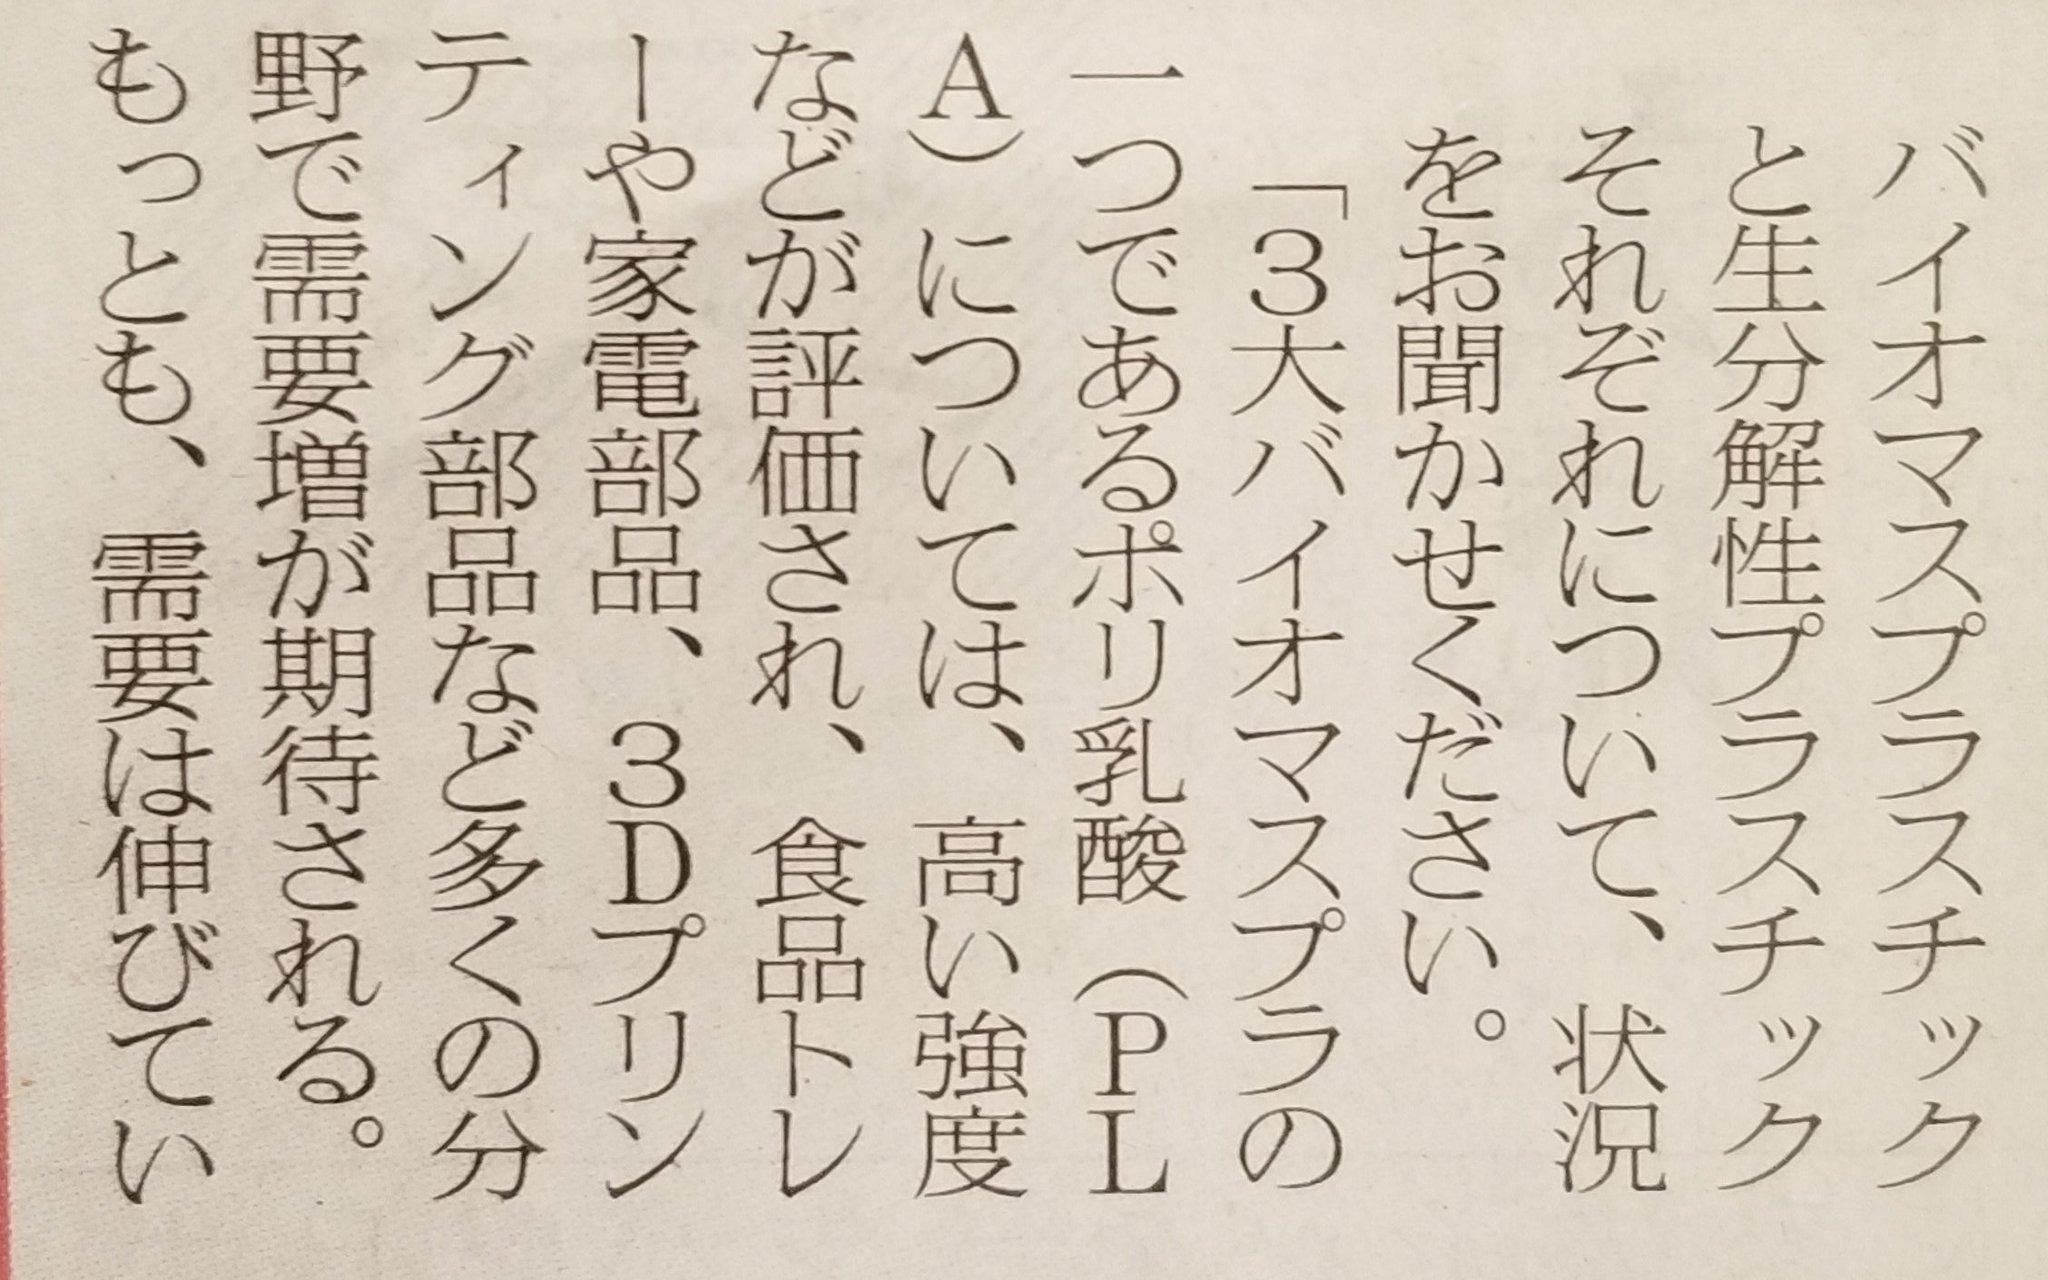 バイオマスプラスチック
と生分解性プラスチック
それぞれについて、状況
をお聞かせください。
「３大バイオマスプラの
一つであるポリ乳酸（ＰＬ
Ａ）については、高い強度
などが評価され、食品トレ
ーや家電部品、３Ｄプリン
ティング部品など多くの分
野で需要増が期待される。
もっとも、需要は伸びてい